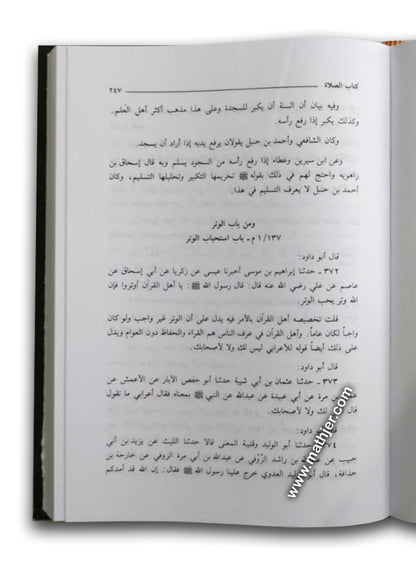 كتاب الصلاة ٢٤٧
وفيه بيان أن السنة أن يكبر للسجدة وعلى هذا مذهب أكثر أهل العلم،
وكذلك يكبر إذا رفع رأسه.
وكان الشافعي وأحمد بن حنبل يقولان يرفع يديه إذا أراد أن يسجد.
وعن ابن سيرين وعطاء إذا رفع رأسه من السجود يسلم وبه قال إسحاق بن
راهويه واحتج لهم في ذلك بقوله ﷺ تحريمها التكبير وتحليلها التسليم، وكان
أحمد بن حنبل لا يعرف التسليم في هذا.
ومن باب الوتر
١٣٧/ ١ م ـ باب استحباب الوتر
قال أبو داود:
٣٧٢ ـ حدثنا إبراهيم بن موسى أخبرنا عيسى عن زكريا عن أبي إسحاق عن
عاصم عن علي رضي الله عنه قال: قال رسول الله ﷺ: يا أهل القرآن أوتروا فإن
الله وتر يحب الوتر.
قلت تخصيصه أهل القرآن بالأمر فيه يدل على أن الوتر غير واجب ولو كان
واجباً لكان عاماً. وأهل القرآن في عرف الناس هم القراء والحفاظ دون العوام ويدل
على ذلك أيضاً قوله للأعرابي ليس لك ولا لأصحابك.
قال أبو داود:
٣٧٣ ـ حدثنا عثمان بن أبي شيبة حدثنا أبو حفص الأبار عن الأعمش عن
بن مرة عن أبي عبيدة عن عبدالله عن النبي ﷺ بمعناه فقال أعرابي ما تقول
قال لك ولا لأصحابك.
داود:
٣٧٤ حدثنا أبو الوليد وقتيبة المعنى قالا حدثنا الليث عن يزيد بن أبي
حبيب عن بن راشد الزوفي عن عبدالله بن أبي مرة الزوفي عن خارجة بن
حذافة، قال أبو الوليد العدوي خرج علينا رسول الله ﷺ فقال: إن الله قد أمدكم
www.mathjer.com